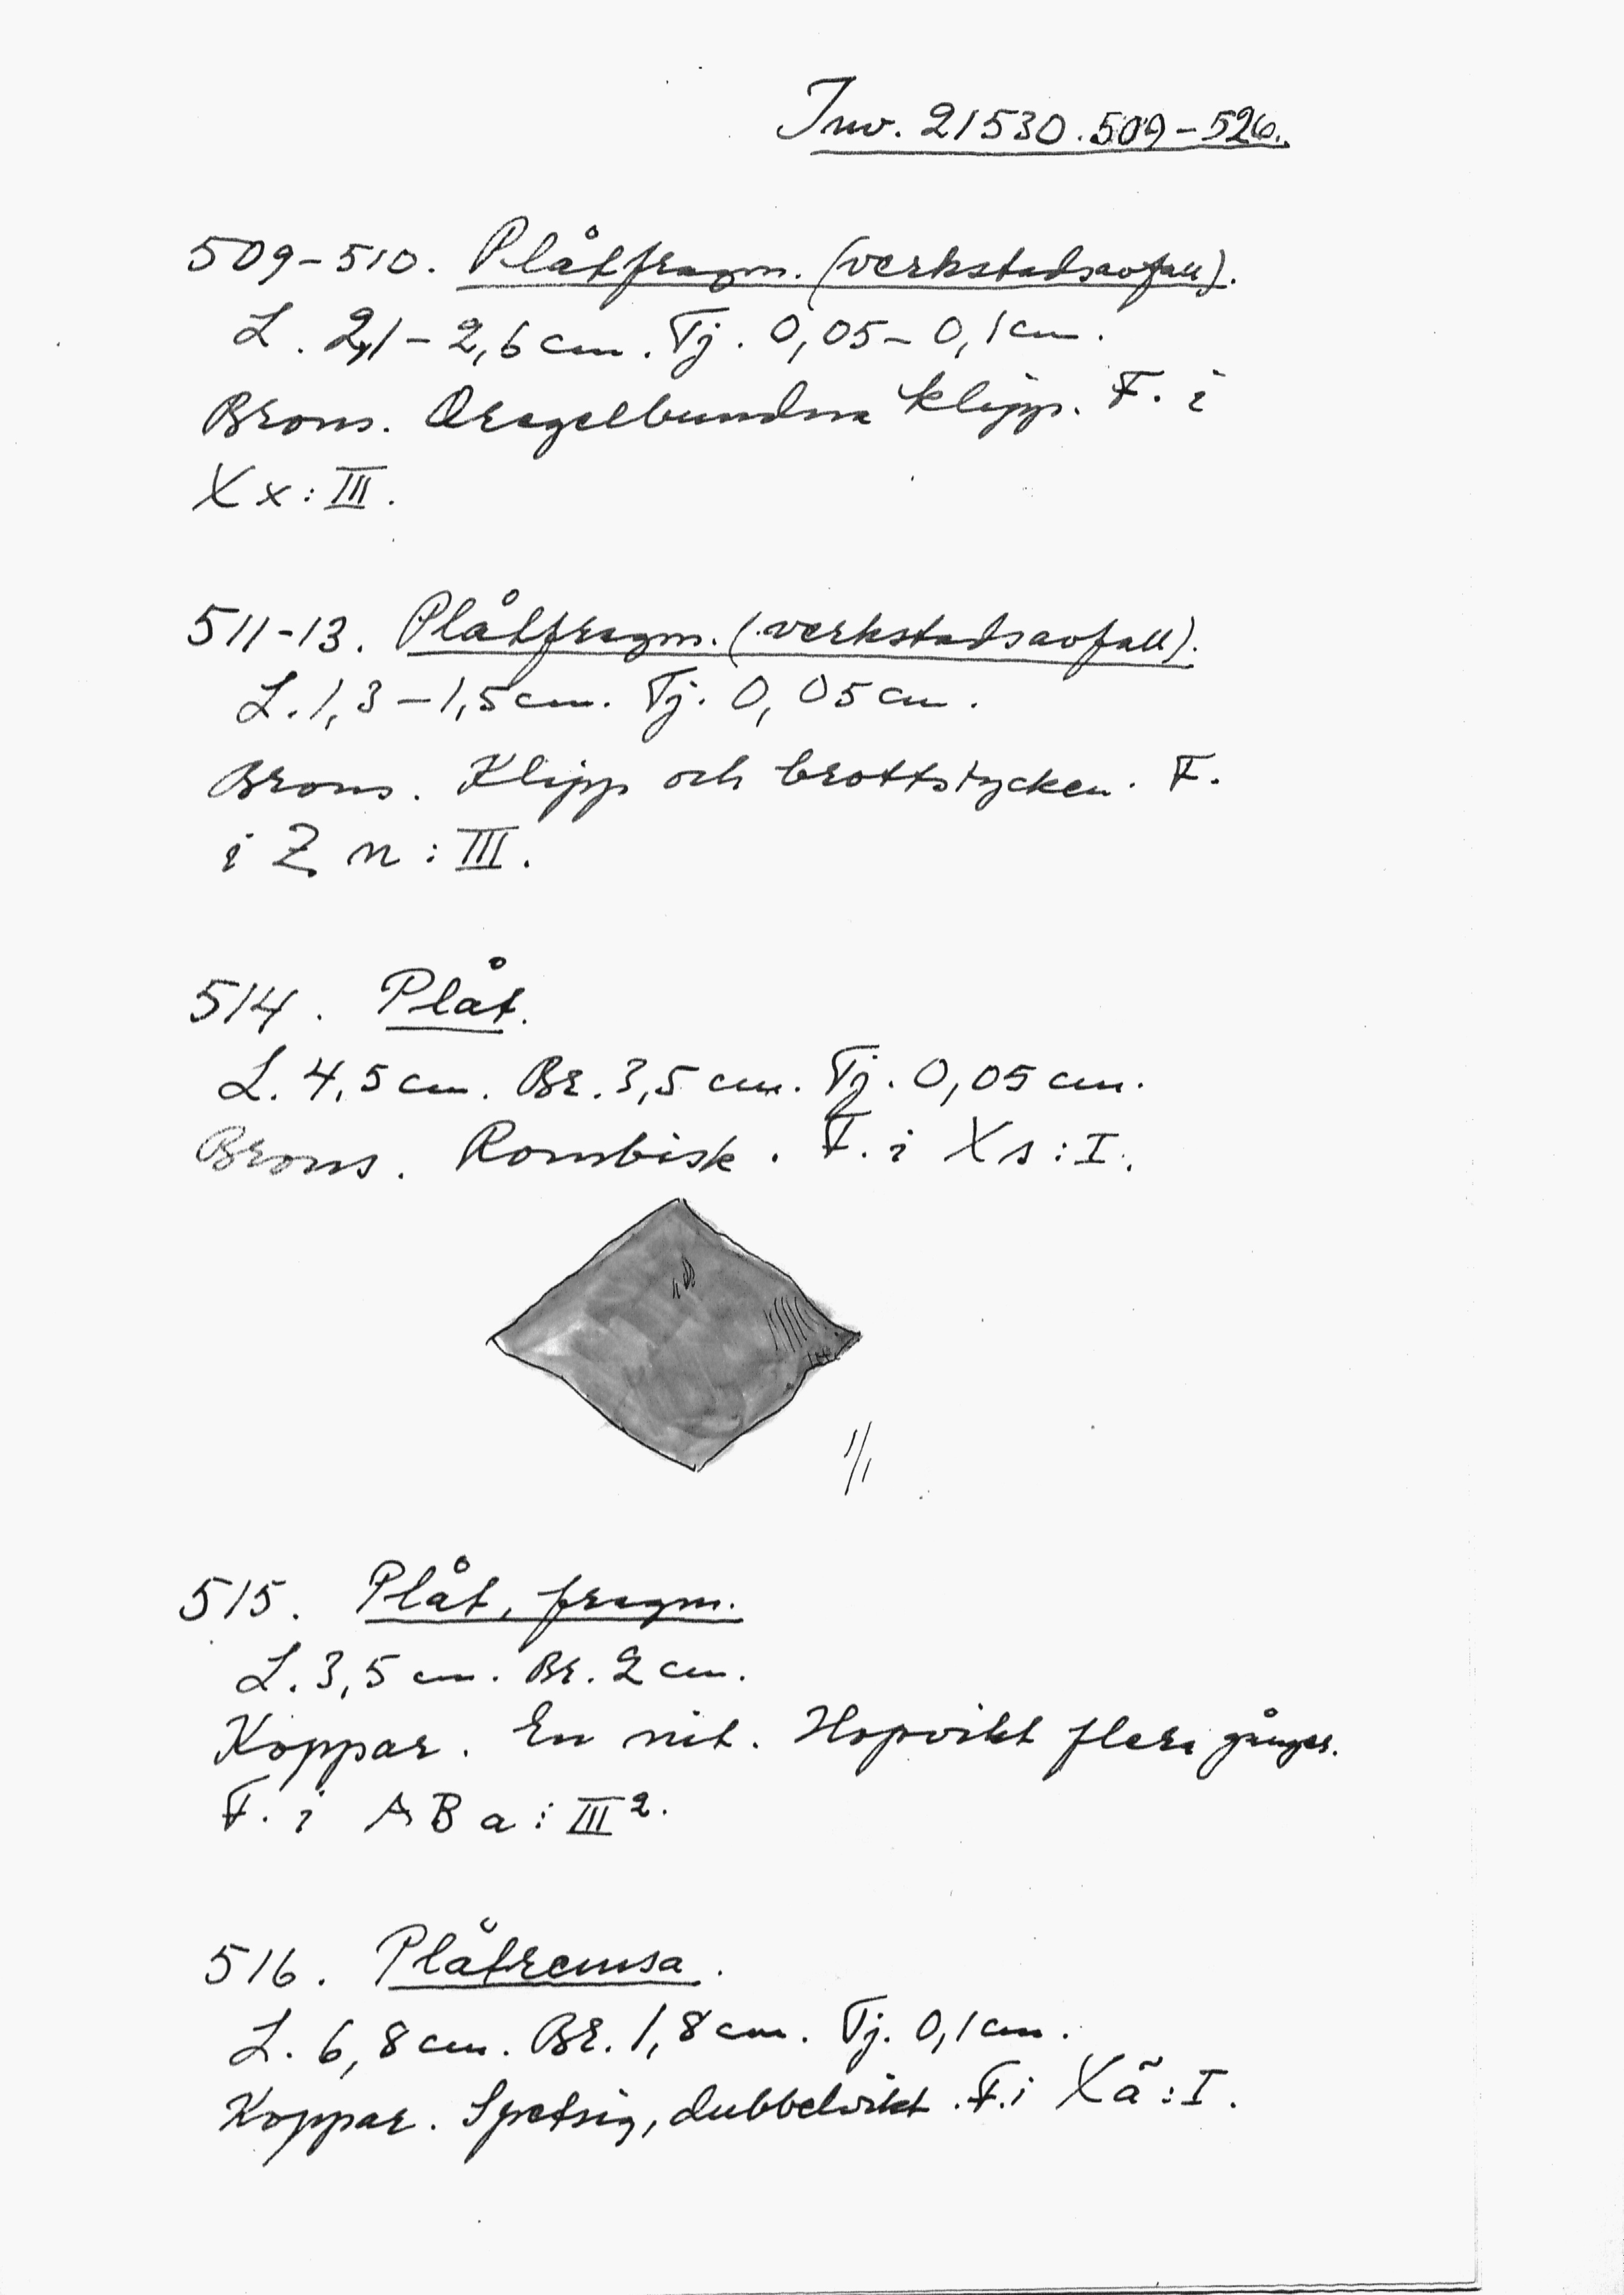 Inv. 21530.509-526.
509-510. Plåtfragm. (verkstadsavfall).
L. 2,1-2,6 cm. Tj. 0,05-0,1 cm.
Brons. Oregelbundna klipp. F. i
Xx:III.
511-13. Plåtfragm. (verkstadsavfall).
L. 1,3-1,5 cm. Tj. 0,05 cm.
Brons. Klipp och brottstycken. F.
i Z n:III.
514. Plåt.
L. 4,5 cm. Br. 3,5 cm. Tj. 0,05 cm.
Brons. Rombisk. F. i Xs:I.
1/1
515. Plåt, fragm.
L. 3,5 cm. Br. 2 cm.
Koppar. En nit. Hopvikt flera gånger.
F. i AB a:III².
516. Plåtremsa.
L. 6,8 cm. Br. 1,8 cm. Tj. 0,1 cm.
Koppar. Spetsig, dubbelvikt. F. i Xä:I.